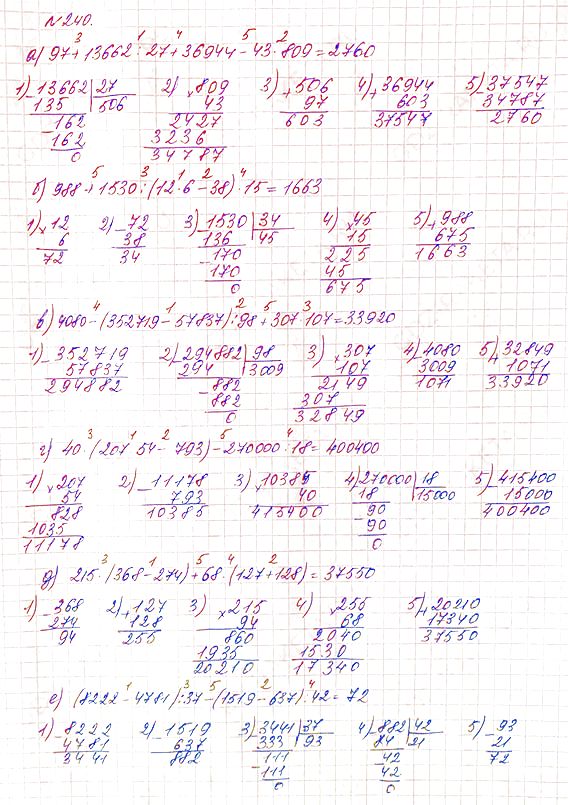 №240.
а) 97 + 13662 : 27 + 36944 − 43 · 809 = 2760
3 1 4 5 2
1) 13662 | 27 2) × 809 3) + 506 4) + 36944 5) − 37547
135 506 43 97 603 34787
− 162 2427 603 37547 2760
162 3236
0 34787
б) 988 + 1530 : (12 · 6 − 38) · 15 = 1663
5 3 1 2 4
1) × 12 2) − 72 3) − 1530 | 34 4) × 45 5) + 988
6 38 136 45 15 675
72 34 − 170 225 1663
170 45
0 675
в) 4080 − (352719 − 57837) : 98 + 307 · 107 = 33920
4 1 2 5 3
1) − 352719 2) − 294882 | 98 3) × 307 4) − 4080 5) + 32849
57837 294 3009 107 3009 1071
294882 − 882 2149 1071 33920
882 307
0 32849
г) 40 · (207 · 54 − 793) − 270000 : 18 = 400400
3 1 2 5 4
1) × 207 2) − 11178 3) × 10385 4) − 270000 | 18 5) − 415400
54 793 40 18 15000 15000
828 10385 415400 − 90 400400
1035 90
11178 0
д) 215 · (368 − 274) + 68 · (127 + 128) = 37550
3 1 5 4 2
1) − 368 2) + 127 3) × 215 4) × 255 5) + 20210
274 128 94 68 17340
94 255 860 2040 37550
1935 1530
20210 17340
е) (8222 − 4781) : 37 − (1519 − 637) : 42 = 72
1 3 5 2 4
1) − 8222 2) − 1519 3) − 3441 | 37 4) − 882 | 42 5) − 93
4781 637 333 93 84 21 21
3441 882 − 111 − 42 72
111 42
0 0